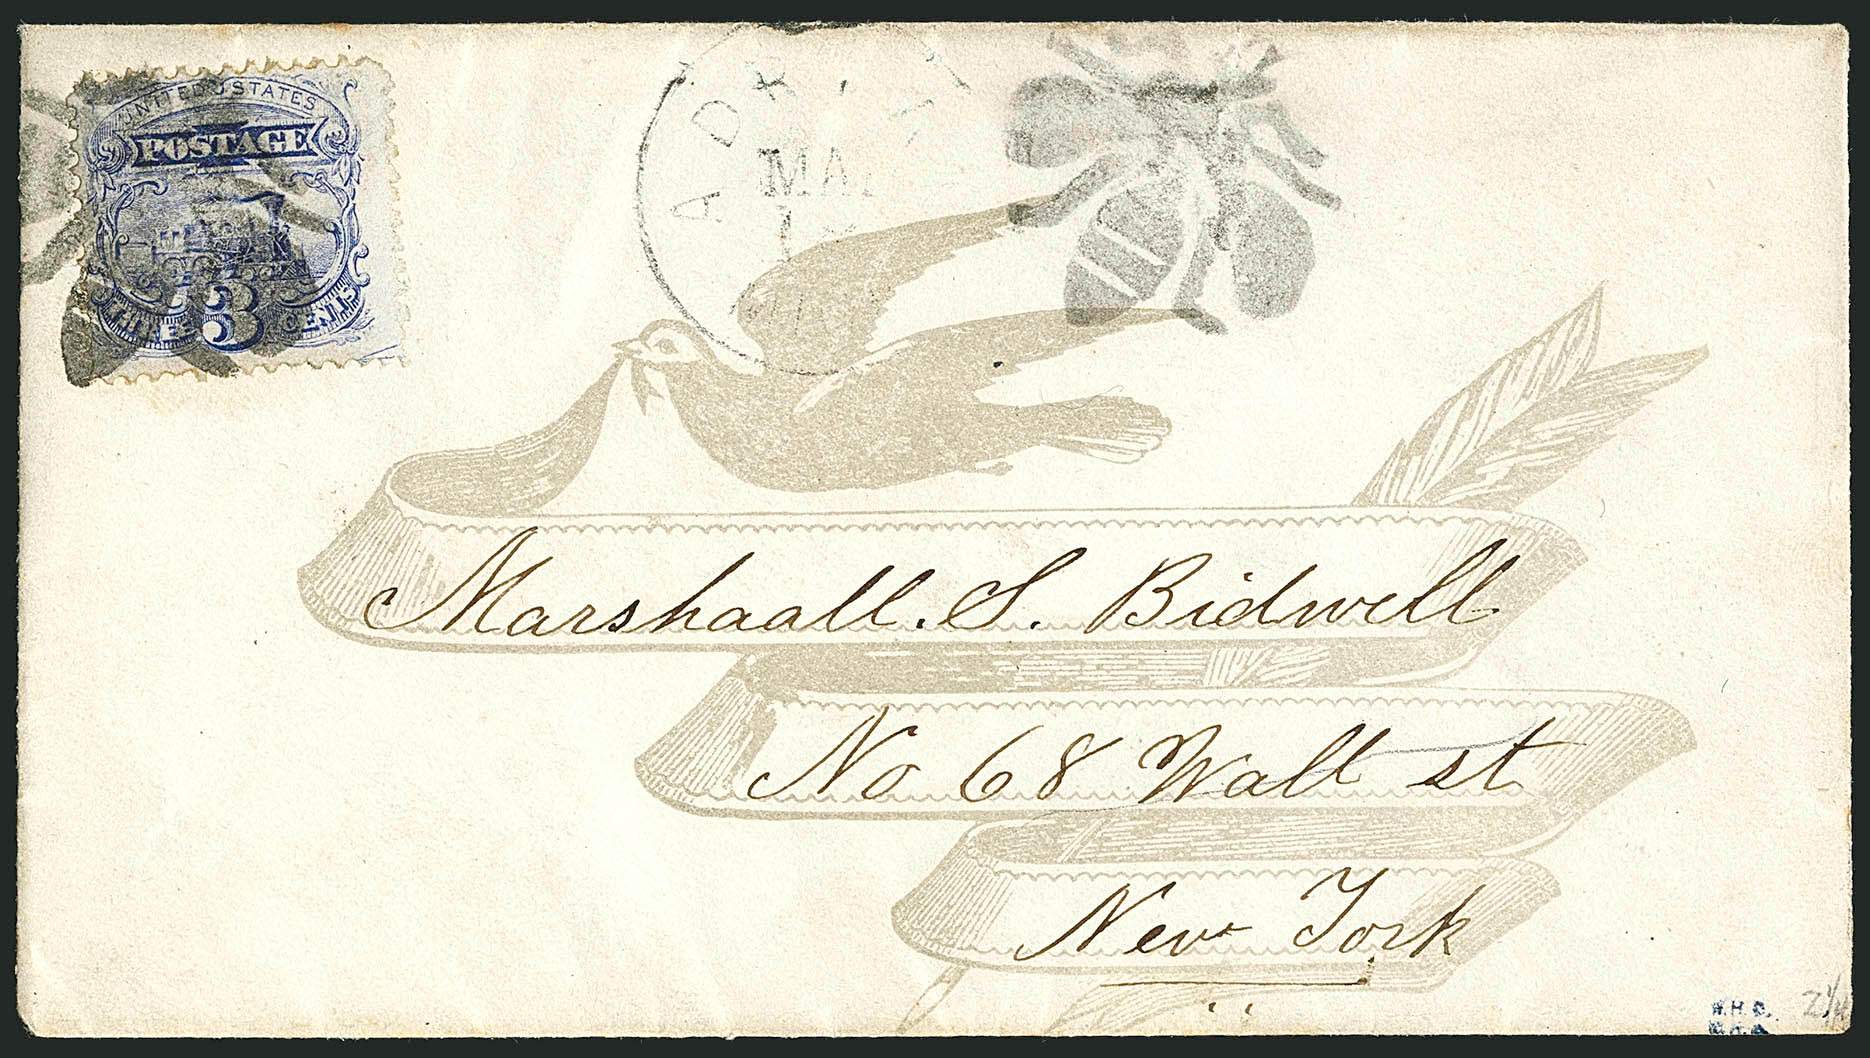 UNITED STATES
POSTAGE
THREE 3 CENTS
MAY
Marshaall. S. Bidwell
No 68 Wall st
New York